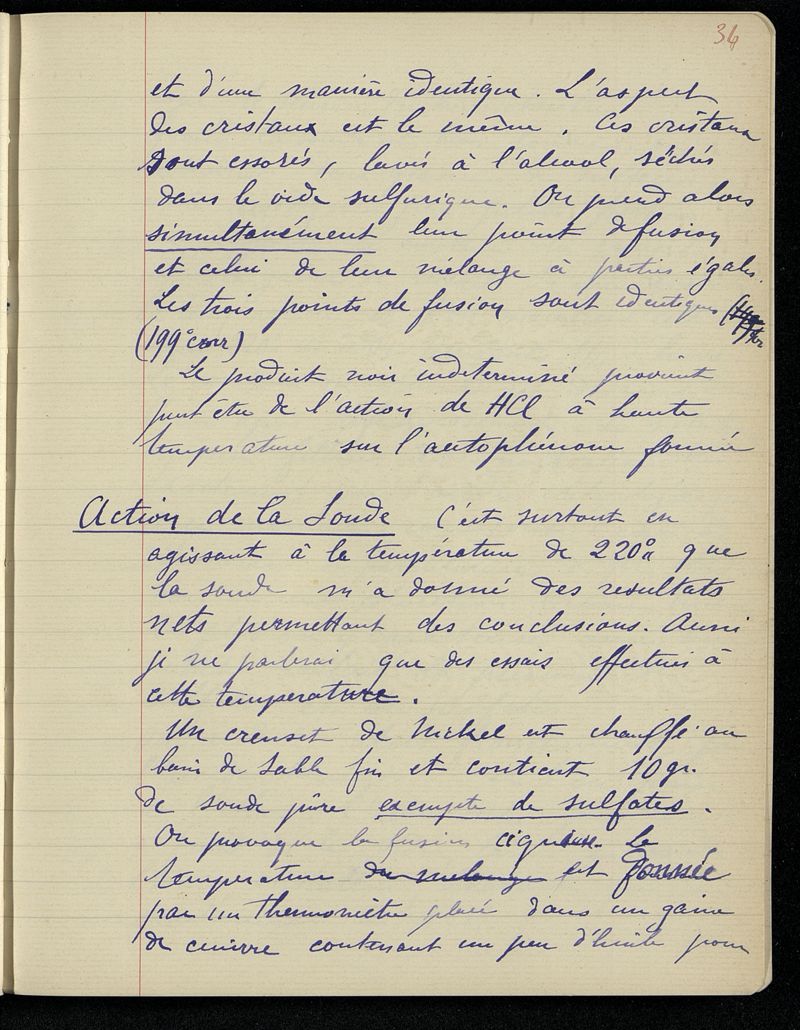 36
et d'une manière identique. L'aspect
des cristaux est le même. Ces cristaux
sont essorés, lavés à l'alcool, séchés
dans le vide sulfurique. On prend alors
simultanément leur point de fusion
et celui de leur mélange à parties égales.
Les trois points de fusion sont identiques
(199° corr)
Le produit noir indeterminé provient
peut être de l'action de HCl à haute
temperature sur l'acétophénone formée
Action de la Soude C'est surtout en
agissant à la température de 220° que
la soude m'a donné des resultats
nets permettant des conclusions. Aussi
je ne parlerai que des essais effectués à
cette temperature.
Un creuset de Nickel est chauffé au
bain de sable fin et contient 10 gr.
de soude pure exempte de sulfates.
On provoque la fusion ignée. La
temperature du melange est donnée
par un thermomètre placé dans un gaine
de cuivre contenant un peu d'huile pour